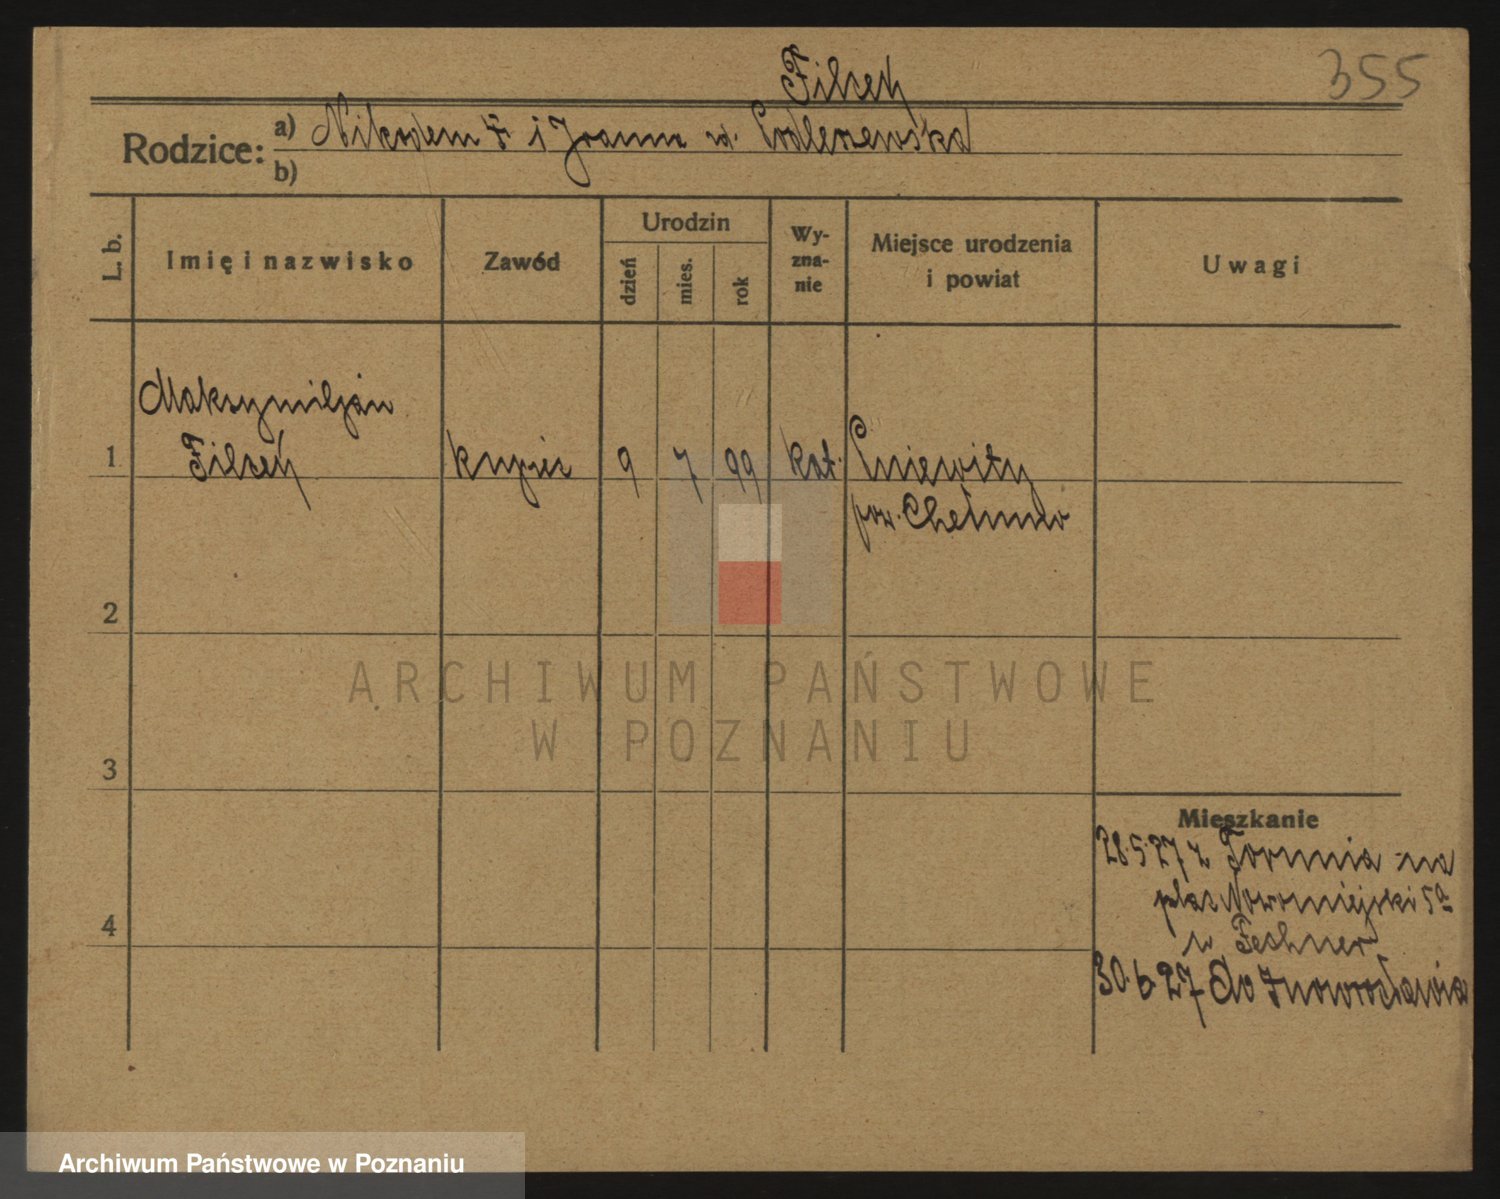 355
Filcek
Rodzice: a) Nikodem F. i Joanna ur. Podlaszewska
b)
L. b.
Imię i nazwisko
Zawód
Urodzin
dzień
mies.
rok
Wy-
zna-
nie
Miejsce urodzenia
i powiat
Uwagi
Maksymiljan
1 Filcek kupiec 9 7 99 kat.
pow. Chełmno
2
3
4
Mieszkanie
28.5.27 z Torunia na
plac Nowomiejski 5a
u Fechner
30.6.27 do Inowrocławia
ARCHIWUM PAŃSTWOWE
W POZNANIU
Archiwum Państwowe w Poznaniu